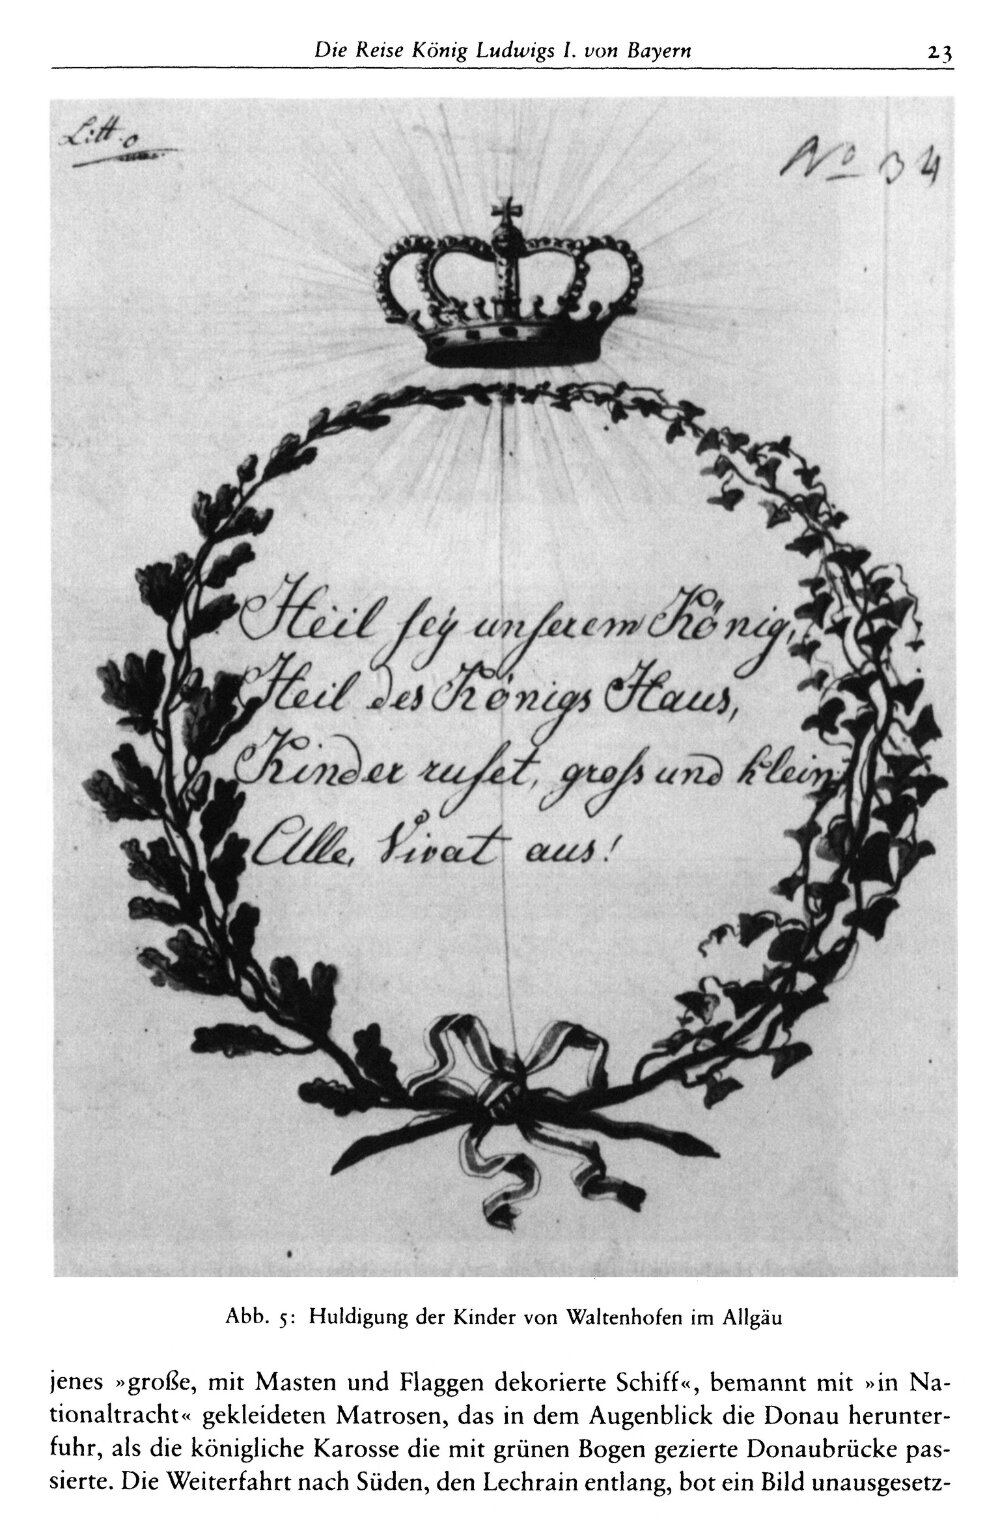 Die Reise König Ludwigs I. von Bayern 23
Litt. o
No 34
Heil ſeÿ unſerem König,
Heil des Königs Haus,
Kinder rufet, groſs und klein
Alle, Vivat aus!
Abb. 5: Huldigung der Kinder von Waltenhofen im Allgäu
jenes »große, mit Masten und Flaggen dekorierte Schiff«, bemannt mit »in Na-
tionaltracht« gekleideten Matrosen, das in dem Augenblick die Donau herunter-
fuhr, als die königliche Karosse die mit grünen Bogen gezierte Donaubrücke pas-
sierte. Die Weiterfahrt nach Süden, den Lechrain entlang, bot ein Bild unausgesetz-